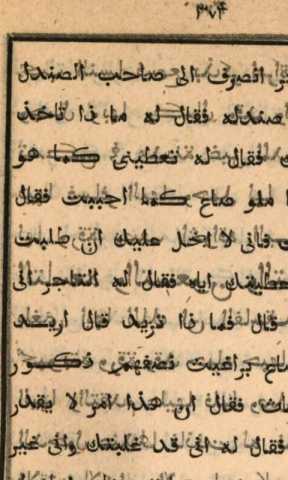 ٣٧۴
انصرف الى صاحب الصندل
صندله فقال له ما ذا تاخذ
فقال له تعطينى كما هو
ملو صاع كما احببت فقال
فانى لا ابخل عليك ان طلبت
اياه فقال له التاجر انى
قال فما ذا تريد قال اريد
صاع براغيت نصفهم ذكور
فقال ان هذا امر لا يقدار
فقال له انى قد غلبتك وانى غير